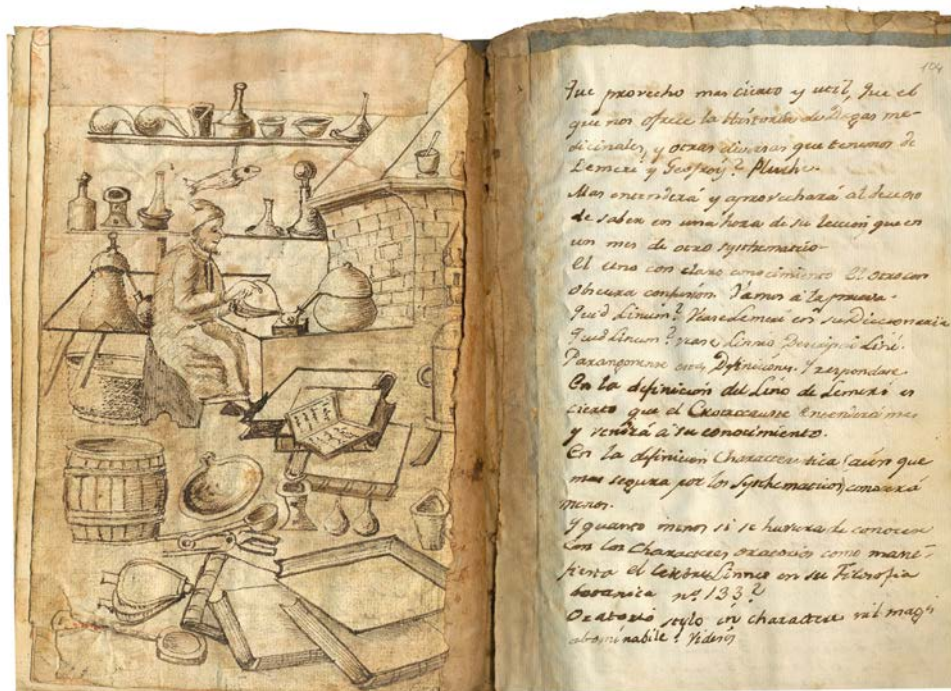 104
Que provecho mas cierto y util, que el
que nos ofrece la Historia de Drogas me-
dicinales, y otras diversas que tenemos de
Lemerí y Geofroy? Pluche.
Mas entenderá y aprovechará al deseoso
de saber en una hora de su leccion que en
un mes de otro systhematico
El uno con claro conocimiento El otro con
obscura confusion. Vamos a la prueva.
Quid Linum? Vease Lemerí en su Diccionario
Quid Linum? vease Linneo Descripció Liní.
Parangonense estas Definiciones. Y respondase
En la definicion del Lino de Lemerí es
cierto que el entenderá mas
y vendrá á su conocimiento.
En la definicion Characteristica (aun que
mas segura por los Systhematicos) conocerá
menos.
Y quanto menos si se huviera de conocer
con los Characteres oratorios como mani-
fiesta el celebre Linneo en su Filosofia
botanica nº 133?
Oratorio stylo in charactere nil magis
abominabile?